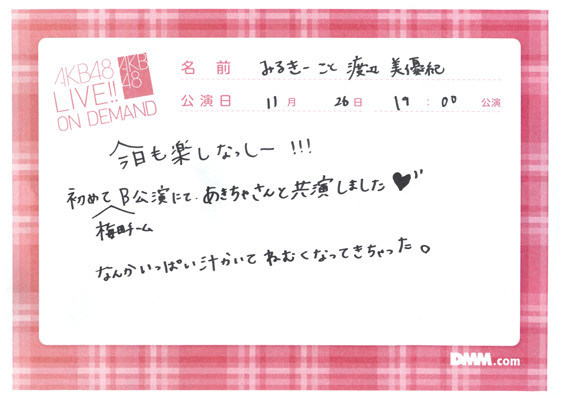 AKB48
LIVE!!
ON DEMAND
AKB
48
名前 みるきーこと 渡辺 美優紀
公演日 11月 26日 19:00 公演
今日も楽しなっしー !!!
初めてB公演にて、あきちゃさんと共演しました♥
梅田チーム
なんかいっぱい汁かいてねむくなってきちゃった。
DMM.com